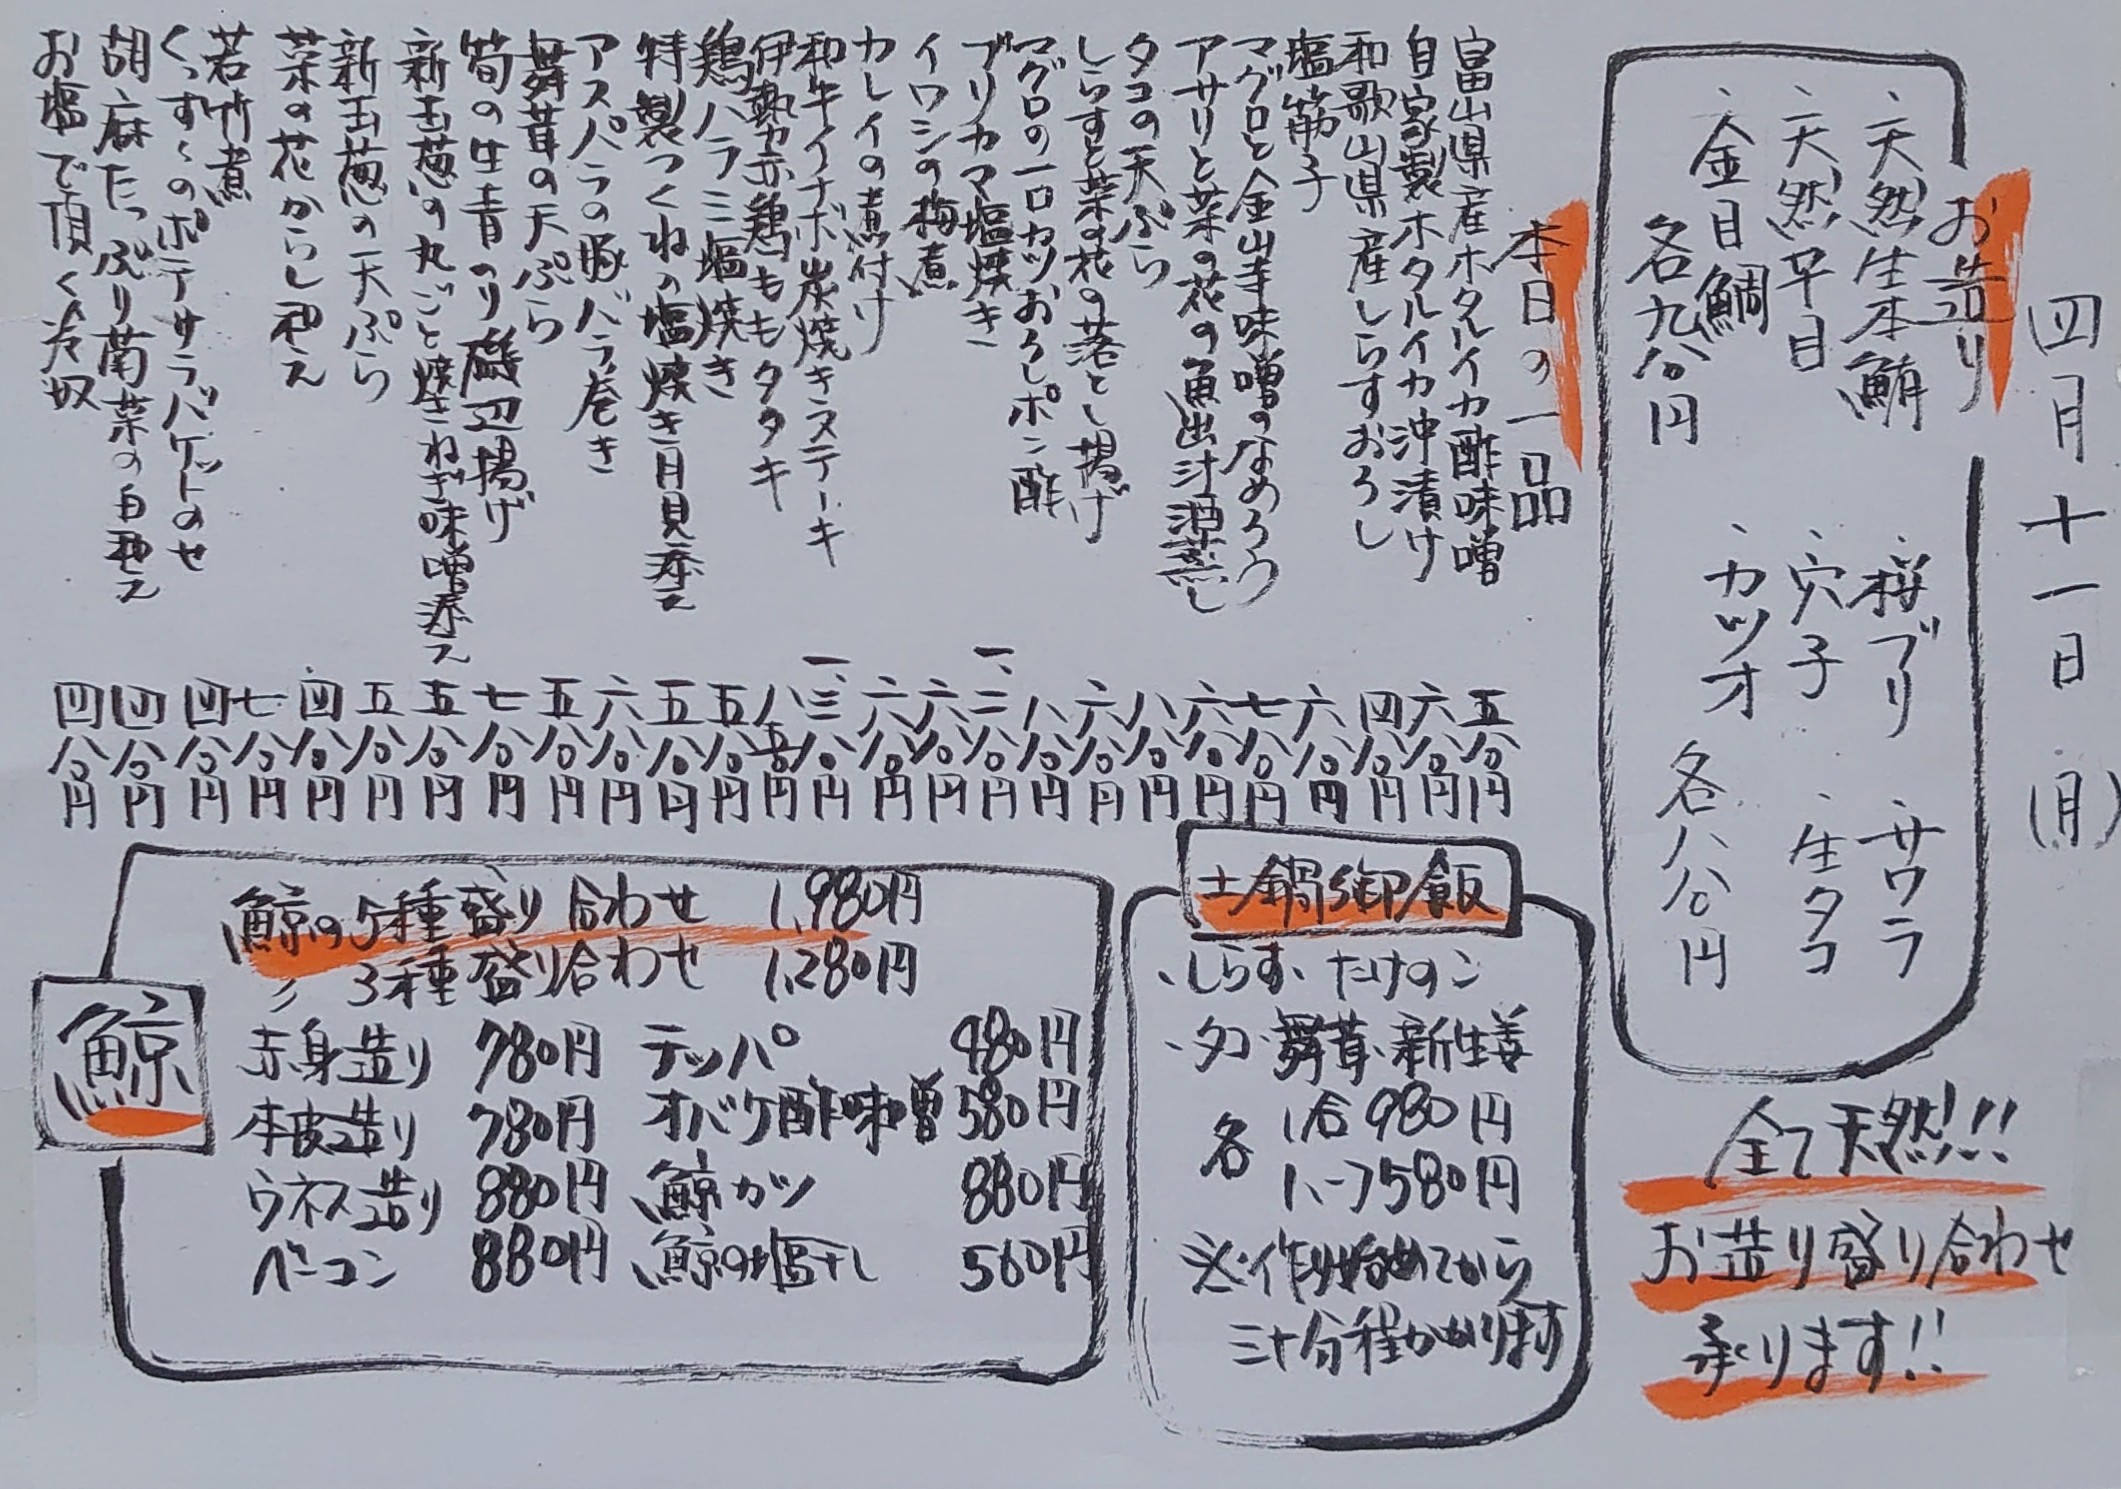 四月十一日(月)
お造り
・天然生本鮪
・天然平目
・金目鯛
各九八〇円
・桜ブリ
・穴子
・カツオ
・サワラ
・生タコ
各八八〇円
全て天然!!
お造り盛り合わせ
承ります!!
本日の一品
富山県産ホタルイカ酢味噌 五八〇円
自家製ホタルイカ沖漬け 六八〇円
和歌山県産しらすおろし 四八〇円
塩筋子 六八〇円
マグロと金山寺味噌のなめろう 七八〇円
アサリと菜の花の魚出汁酒蒸し 六八〇円
タコの天ぷら 八八〇円
しらすと菜の花の落とし揚げ 六八〇円
マグロの一口カツおろしポン酢 八八〇円
ブリカマ塩焼き 一、二八〇円
イワシの梅煮 六八〇円
カレイの煮付け 六八〇円
和牛イチボ炭焼きステーキ 一、三八〇円
伊勢赤鶏ももタタキ 八五〇円
鶏ハラミ塩焼き 五八〇円
特製つくねの塩焼き月見添え 五八〇円
アスパラの豚バラ巻き 六八〇円
舞茸の天ぷら 五八〇円
筍の生青のり磯辺揚げ 七八〇円
新玉葱の丸ごと焼きねぎ味噌添え 五八〇円
新玉葱の天ぷら 五八〇円
菜の花からし和え 四八〇円
若竹煮 七八〇円
くっすくのポテサラバゲットのせ 四八〇円
胡麻たっぷり菊菜の白和え 四八〇円
お塩で頂く冷奴 四八〇円
土鍋御飯
・しらす・たけのこ
・タコ・舞茸・新生姜
各 1合 980円
1ハーフ580円
※作り始めてから
三十分程かかります
鯨
鯨の5種盛り合わせ 1,980円
〃 3種盛り合わせ 1,280円
赤身造り 780円 テッパ 480円
本皮造り 780円 オバケ酢味噌 580円
ウネス造り 880円 鯨カツ 880円
ベーコン 880円 鯨の塩干し 560円